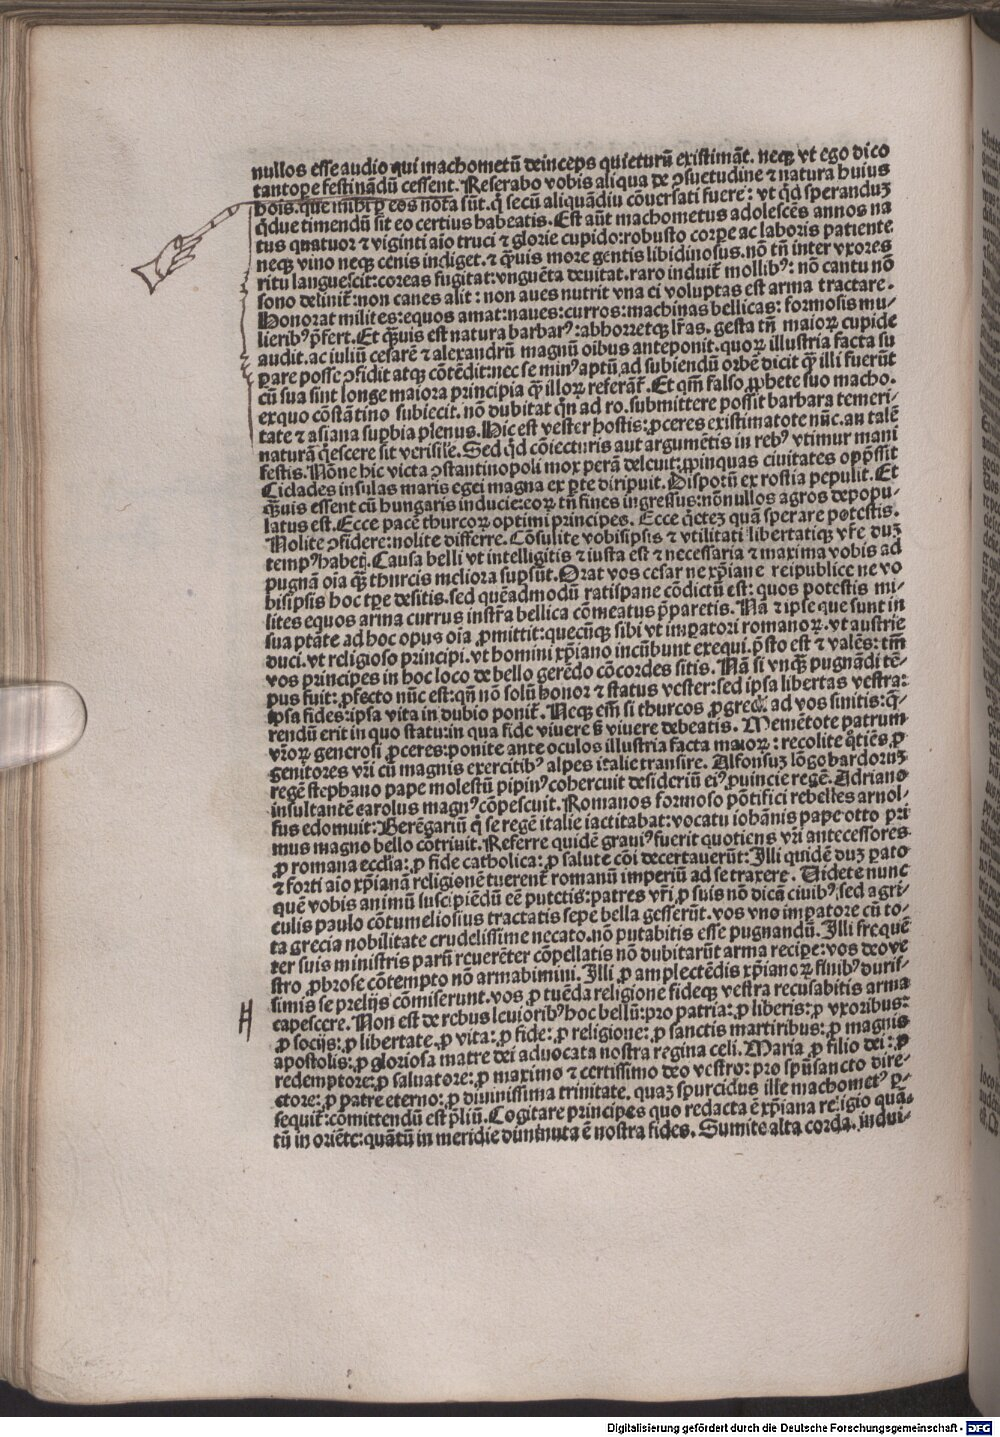 nullos esse audio qui machometū deinceps quieturū existimāt. neqꝫ vt ego dico
tantopere festinādū cessent. Reserabo vobis aliqua de ꝯsuetudine ⁊ natura huius
hoīs. que mihi ꝑ eos nota sūt. q̄ secū aliquandiu cōuersati fuere: vt qd̄ speranduꝫ
qd̄ue timendū sit eo certius habeatis. Est aūt machometus adolescēs annos na
tus quatuor ⁊ viginti aīo truci ⁊ glorie cupido: robusto corꝑe ac laboris patiente
neqꝫ vino neqꝫ cenis indiget. ⁊ qꝫuis more gentis libidinosus. nō tn̄ inter vxores
ritu languescit: coreas fugitat: vnguēta deuitat. raro induit᷑ mollibꝰ: nō cantu nō
sono delinit᷑: non canes alit: non aues nutrit vna ei voluptas est arma tractare.
Honorat milites: equos amat: naues: curros: machinas bellicas: formosis mu-
lieribꝰ p̄fert. Et qꝫuis est natura barbarꝰ: abhorretqꝫ lr̄as. gesta tn̄ maioꝝ cupide
audit. ac iuliū cesarē ⁊ alexandrū magnū oībus anteponit. quoꝝ illustria facta su
ꝑare posse ꝯfidit atqꝫ cōtēdit: nec se minꝰ aptū ad subiendū orbē dicit qꝫ illi fuerūt
cū sua sint longe maiora principia qꝫ illoꝝ referāt᷑. Et qm̄ falso ꝓphete suo macho.
exquo cōstātino subiecit. nō dubitat qn̄ ad ro. submittere possit barbara temeri-
tate ⁊ asiana suꝑbia plenus. Hic est vester hostis: ꝓceres existimatote nūc. an talē
naturā q̄escere sit verisile. Sed qd̄ cōiecturis aut argumētis in rebꝰ vtimur mani
festis. Nōne hic victa ꝯstantinopoli mox perā deleuit: ꝓpinquas ciuitates opp̄ssit
Ciclades insulas maris egei magna ex ꝑte diripuit. Dispotū ex rostia pepulit. Et
qꝫuis essent cū hungaris inducie: eoꝝ tn̄ fines ingressus: nōnullos agros depopu-
latus est. Ecce pacē thurcoꝝ optimi principes. Ecce q̄eteꝫ quā sperare potestis.
Nolite ꝯfidere: nolite differre. Cōsulite vobisipsis ⁊ vtilitati libertatiqꝫ vr̄e duꝫ
tempꝰ habetꝭ. Causa belli vt intelligitis ⁊ iusta est ⁊ necessaria ⁊ maxima vobis ad
pugnā oīa qꝫ thurcis meliora suꝑsūt. Orat vos cesar ne xp̄iane reipublice ne vo
bisip̄sis hoc tꝑe desitis. sed quēadmodū ratispane cōdictū est: quos potestis mi-
lites equos arma currus instr̄a bellica cōmeatus p̄paretis. Nā ⁊ ip̄se que sunt in
sua ptāte ad hoc opus oīa ꝓmittit: quecūqꝫ sibi vt imꝑatori romanoꝝ. vt austrie
duci. vt religioso principi. vt homini xp̄iano incūbunt exequi. p̄sto est ⁊ valēs: tm̄
vos principes in hoc loco de bello gerēdo cōcordes sitis. Nā si vnqꝫ pugnādi tē-
pus fuit: ꝓfecto nūc est: qn̄ nō solū honor ⁊ status vester: sed ipsa libertas vestra:
ip̄sa fides: ip̄sa vita in dubio ponit᷑. Neqꝫ em̄ si thurcos ꝓgredi ad vos sinitis: q̄-
rendū erit in quo statu: in qua fide viuere sꝫ viuere debeatis. Memētote patrum
vr̄oꝝ generosi ꝓceres: ponite ante oculos illustria facta maioꝝ: recolite qͦtiēs ꝓ
genitores vr̄i cū magnis exercitibꝰ alpes italie transire. Alfonsuꝫ lōgobardoruꝫ
regē stephano pape molestū pipinꝰ cohercuit desideriū eiꝰ ꝓuincie regē. Adriano
insultantē carolus magnꝰ cōpescuit. Romanos formoso pōtifici rebelles arnol-
fus edomuit: Berēgariū q̄ se regē italie iactitabat: vocatu iohānis pape otto pri
mus magno bello cōtriuit. Referre quidē grauiꝰ fuerit quotiens vr̄i antecessores
ꝓ romana eccl̄ia: ꝓ fide catholica: ꝓ salute cōi decertauerūt: Illi quidē duꝫ ꝑato
⁊ forti aīo xp̄ianā religionē tuerent᷑ romanū imperiū ad se traxere. Videte nunc
quē vobis animū suscipiēdū eē putetis: patres vr̄i ꝓ suis nō dicā ciuibꝰ: sed agri-
culis paulo cōtumeliosius tractatis sepe bella gesserūt. vos vno imꝑatore cū to-
ta grecia nobilitate crudelissime necato. nō putabitis esse pugnandū. Illi frequē
ter suis ministris parū reuerēter cōpellatis nō dubitarūt arma reciꝑe: vos deo ve
stro ꝓbrose cōtempto nō armabimini. Illi ꝓ amplectēdis xp̄ianoꝝ finibꝰ durif-
simis se prelijs cōmiserunt. vos ꝓ tuēda religione fideqꝫ vestra recusabitis arma
capescere. Non est de rebus leuioribꝰ hoc bellū: pro patria: ꝓ liberis: ꝓ vxoribus:
ꝓ socijs: ꝓ libertate ꝓ vita: ꝓ fide: ꝓ religione: ꝓ sanctis martiribus: ꝓ magnis
apostolis: ꝓ gloriosa matre dei aduocata nostra regina celi. Maria ꝓ filio dei: ꝓ
redemptore: ꝓ saluatore: ꝓ maximo ⁊ certissimo deo vestro: pro spūsancto dire-
ctore: ꝓ patre eterno: ꝓ diuinissima trinitate. quaꝫ spurcidus ille machometꝰ ꝑ-
sequit᷑: cōmittendū est p̄liū. Cogitare principes quo redacta ē xp̄iana religio quā-
tū in oriēte: quātū in meridie diminuta ē nostra fides. Sumite alta corda. indui-
Digitalisierung gefördert durch die Deutsche Forschungsgemeinschaft - DFG